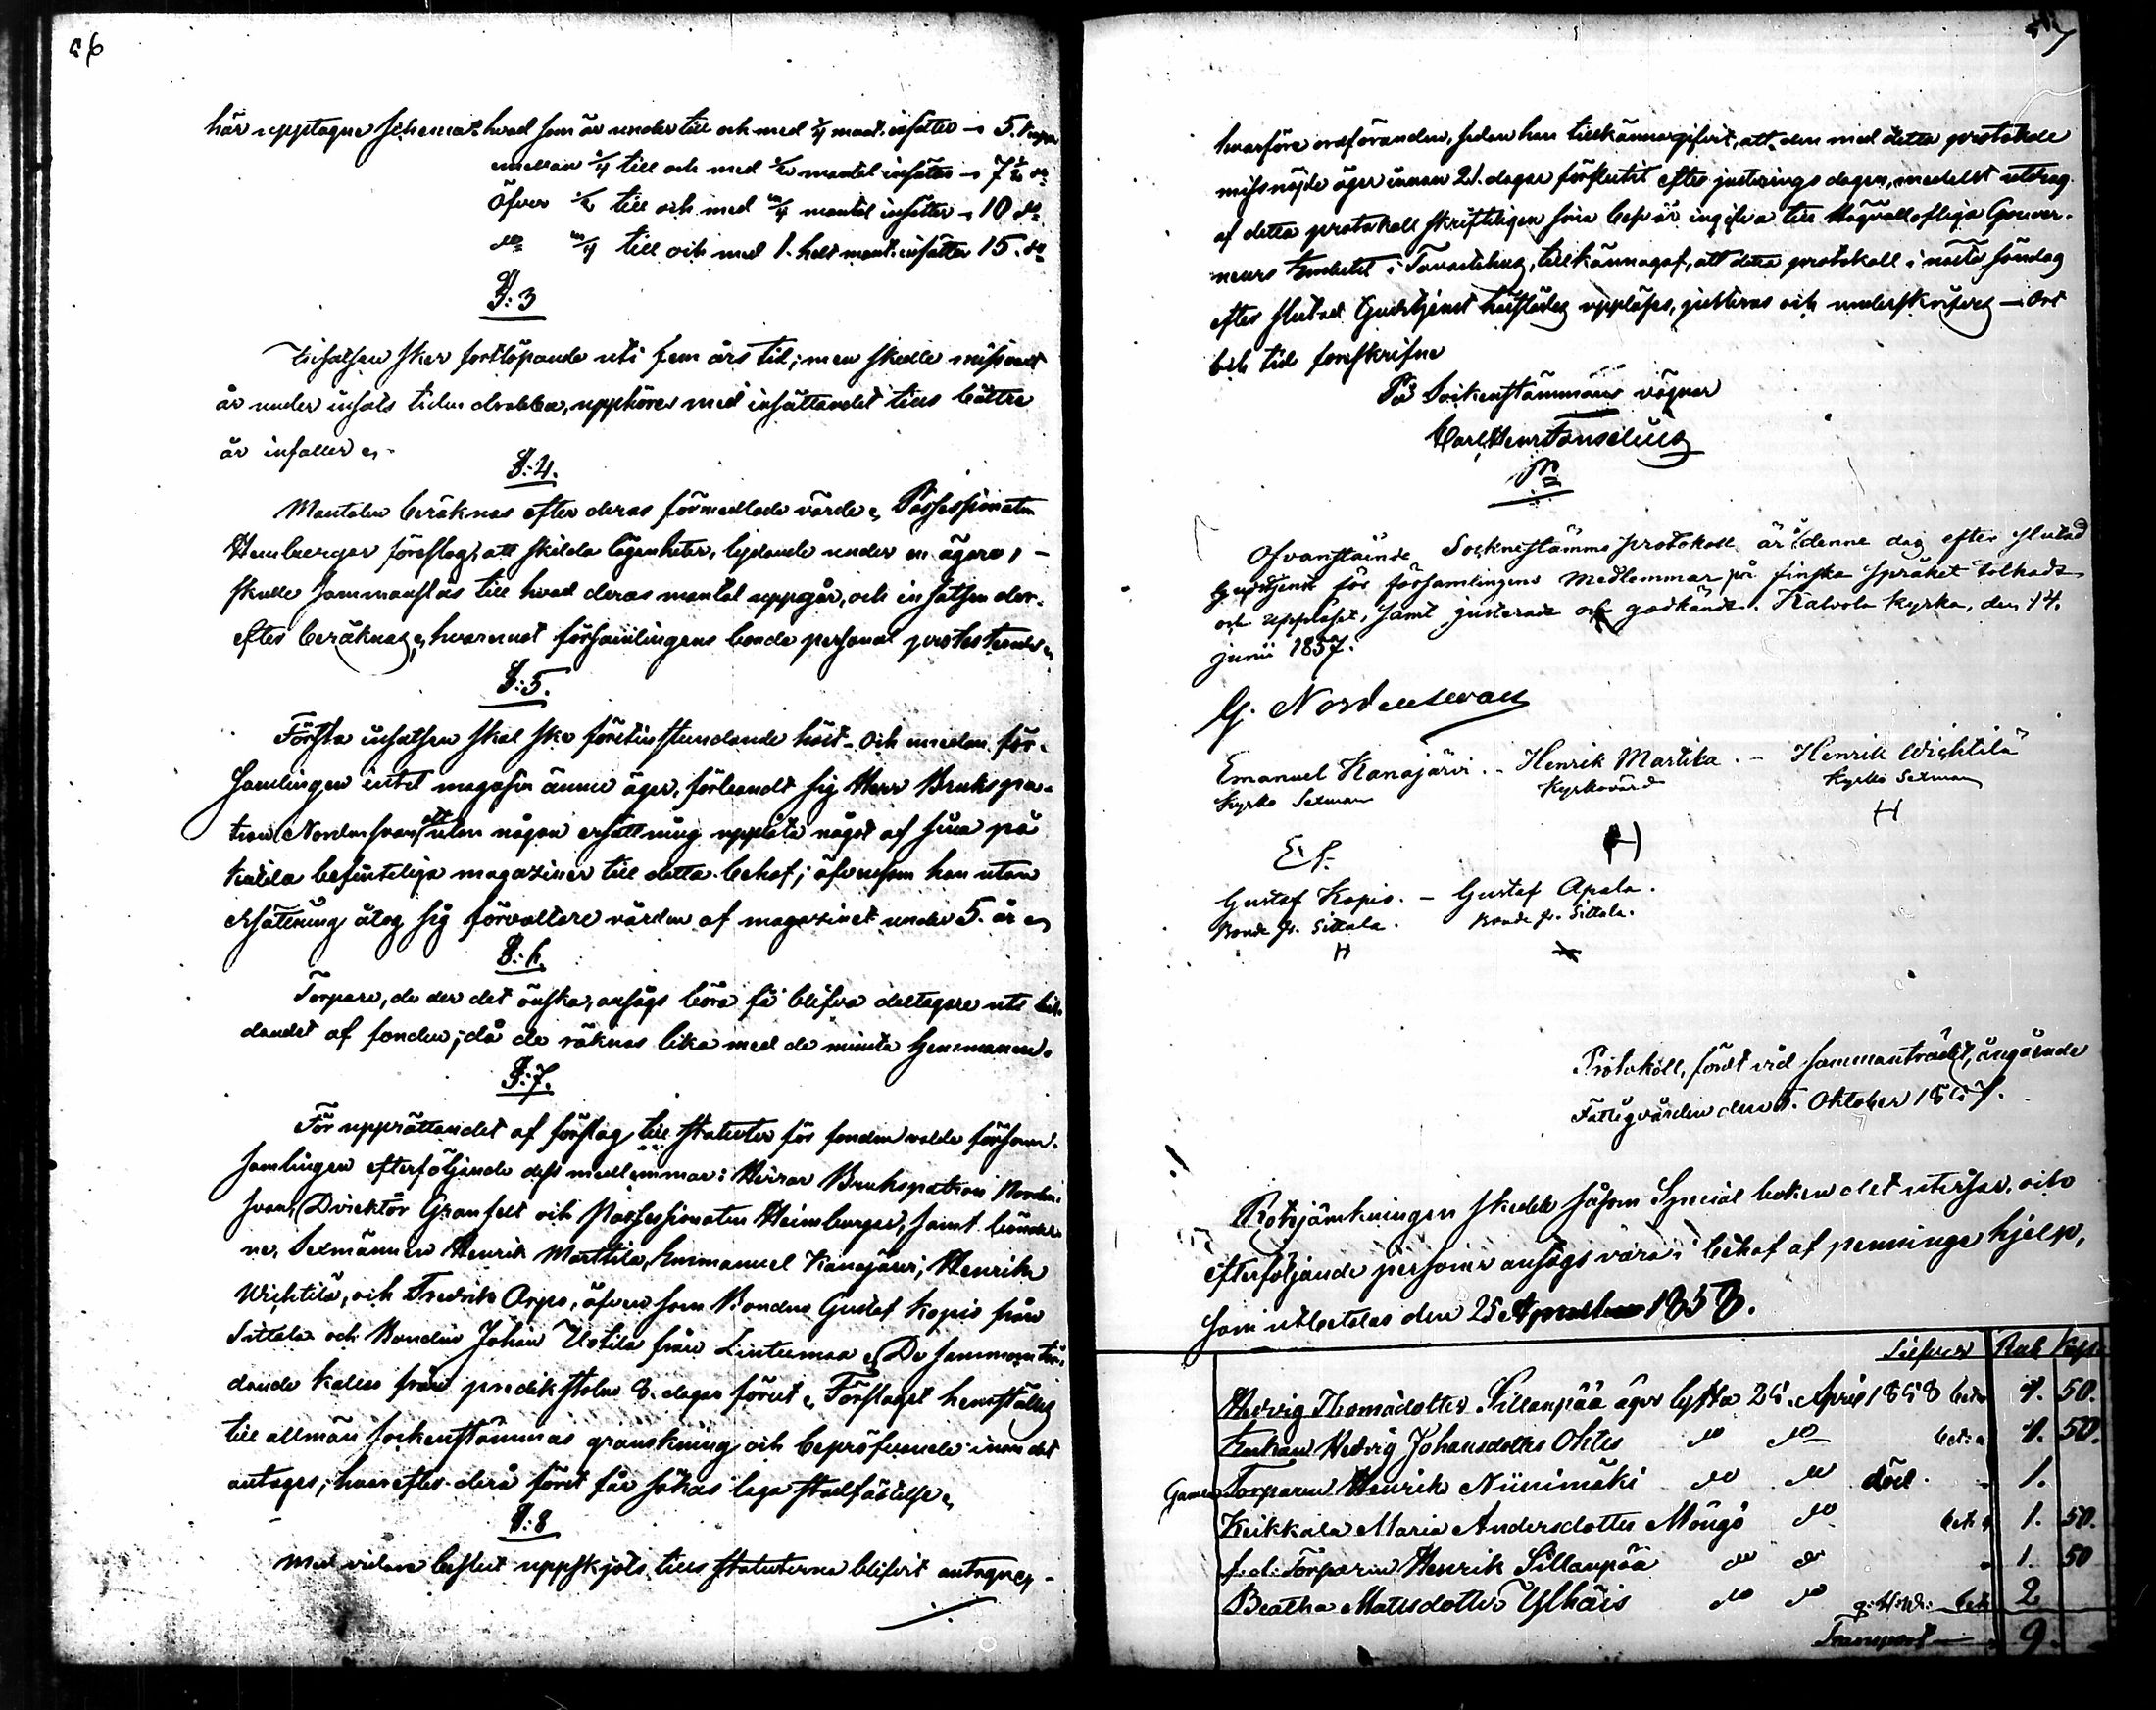 56
här upptagne schemat: hvad som är under till och med 1/4 mant. insätter 5. kapp.
emellan 1/4 till och med 1/2 mantal insätter 7 1/2 do
Öfver 1/2 till och med 3/4 mantal insätter 10 do
do 3/4 till och med 1. helt mant. insätter 15. do
§: 3
Insatsen sker fortlöpande uti fem års tid; men skulle missvext
år under insats tiden drabba, upphöres med insättandet tills bättre
år infaller
§: 4.
Mantalen beräknas efter deras förmedlade värde, Possessionaten
Heimberger föreslog, att skilda lägenheter, lydande under en ägare,
skulle sammanslås till hvad deras mantal uppgår, och insatsen der-
efter beräknas, hvaremot församlingens bonde personal protesterade
§: 5.
Första insatsen skal ske förestundande höst. Och emedan för-
samlingen intet magasin ännu äger, förband sig Herr Brukspa-
tron Nordensvan att utan någon ersättning upplåta något af sina på
Kutila befinteliga magasiner till detta behof; äfvensom han utan
ersättning åtog sig förvaltare vården af magasinet under 5. år
§: 6
Torpare, de der det önska, ansågs böra få blifva deltagare uti bil-
dandet af fonden; då de räknas lika med de minsta hemmanen.
§: 7.
För upprättandet af förslag till statuter för fonden valde försam-
samlingen efterföljande dess medlemmar: Herrar Brukspatron Norden-
svan, Direktör Granfelt och Possessionaten Heimberger, samt bönder-
ne, Sexmännen Henrik Marttila, Emmanuel Kanajärvi, Henrik
Wichtilä, och Fredrik Orpo, äfven som Bonden Gustaf Kopis från
Sittala och Bonden Johan Uotila från Lintumaa De sammanträ-
dande kallas från predikstolen 8. dagar förut Förslaget hemställes
till allmän sockenstämmas granskning och bepröfvande innan det
antages; hvarefter derå först får sökas laga stadfästelse
§: 8
Med vidare beslut uppskjöts tills statuterna blifvit antagne

57
hvarföre ordföranden, sedan han tillkännagifvit, att den med detta protokoll
missnöjde äger innan 21. dagar förflutit efter justerings dagen, medelst utdrag
af detta protokoll skrifteligen sina besvär ingifva till Högvällofliga Gouver-
neurs Embetet i Tavastehus, tillkännagaf, att detta protokoll i nästa söndag
efter slutad Gudstjenst härstädes uppläses, justeras och underskrifves Ort
och tid foreskrifne
På Sockenstämmans vägnar
Carl Henr Fonselius
Ofvanstående Sockenstämmo protokoll är denne dag efter slutad
Gudstjenst för församlingens Medlemmar på finska språket tolkadt
och uppläset, samt justerade och godkändt. Kalvola Kyrka, den 14.
junii 1857.
G. Nordenswan
Emanuel Kanajärvi. - Henrik Martika. - Henrik Wichtilä
Kyrko Sexman Kyrkovärd Kyrko Sexman
H
E. S. H
Gustaf Kopis. - Gustaf Apala.
Bonde fr. Sittala. Bonde fr. Sittala.
H
Protokoll, fördt vid sammanträdet, angående
Fattigvården den 5. Oktober 1857.
Rotejämkningen skedde såsom Special boken det utvisar, och
efterföljande personer ansågs vara i behof af penninge hjelp,
som utbetalas den 25 April 1858.
Silfver Rub Kop:
Hedvig Thomadotter Sillanpää äger lyfta 25. April 1858 bet: 1. 50.
Enkan Hedvig Johansdotter Ohtis do do bet: 1. 50.
Gamla Torparen Henrik Niinimäki do do död. 1.
Keikkala Maria Andersdotter Möngö do bet: 1. 50.
f. d. Torparen Henrik Sillanpää do do 1. 50
Beatha Mattsdotter Ylhäis do do bet: 2
Transport 9.